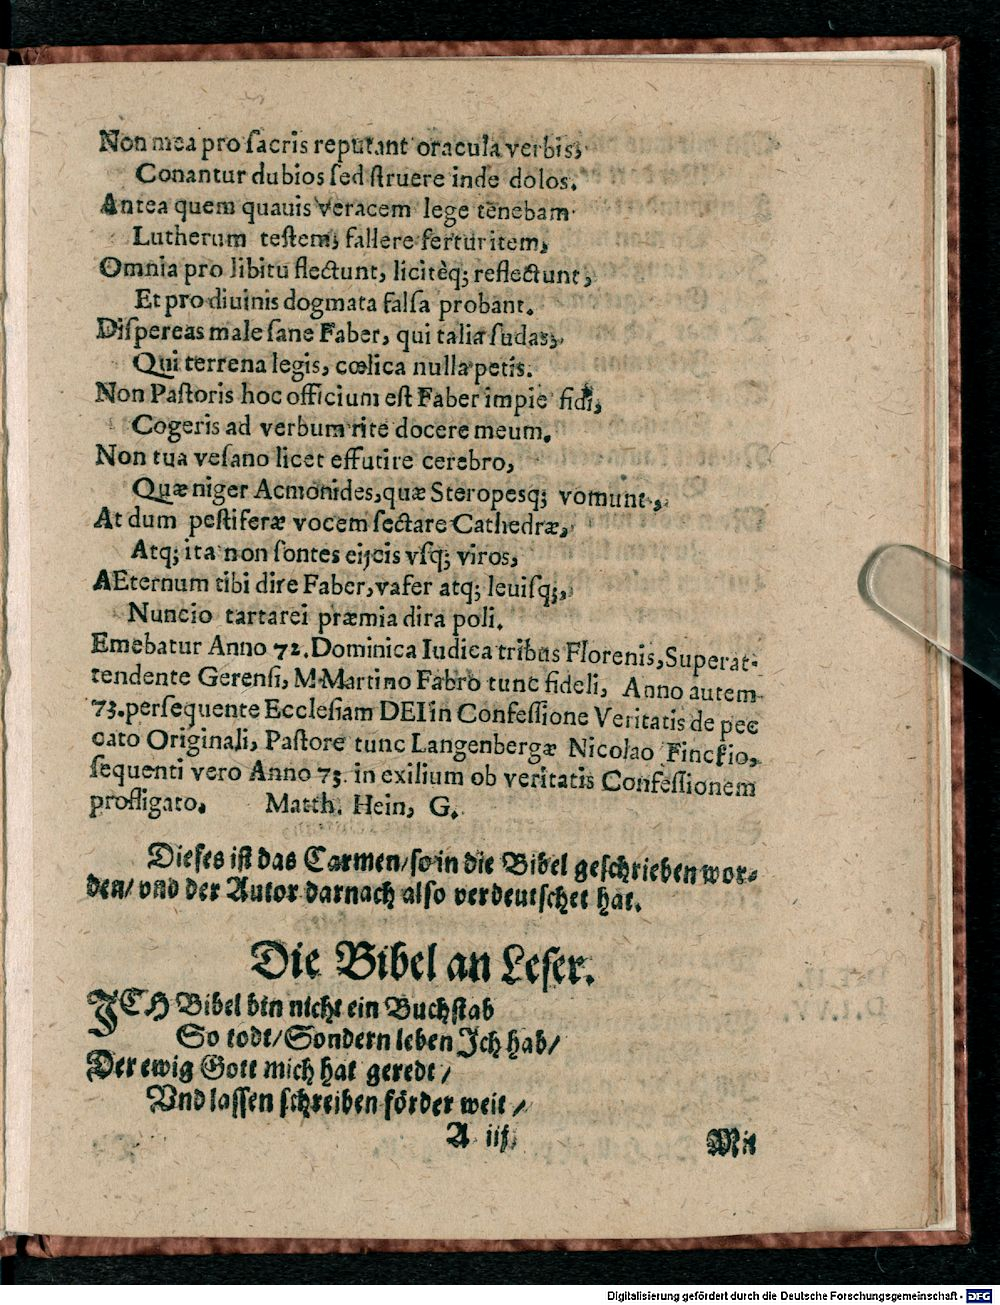 Non mea pro ſacris reputant oracula verbis,
Conantur dubios ſed ſtruere inde dolos.
Antea quem quauis veracem lege tenebam
Lutherum teſtem, fallere fertur item,
Omnia pro libitu flectunt, licitèq; reflectunt,
Et pro diuinis dogmata falſa probant.
Diſpereas male ſane Faber, qui talia ſudas,
Qui terrena legis, cœlica nulla petis.
Non Paſtoris hoc officium eſt Faber impie fidi,
Cogeris ad verbum rite docere meum.
Non tua veſano licet effutire cerebro,
Quæ niger Acmonides, quæ Steropesq; vomunt,
At dum peſtiferæ vocem ſectare Cathedræ,
Atq; ita non ſontes eijcis vſq; viros,
AEternum tibi dire Faber, vafer atq; leuiſq;,
Nuncio tartarei præmia dira poli.
Emebatur Anno 72. Dominica Iudica tribus Florenis, Superat-
tendente Gerenſi, M. Martino Fabro tunc fideli, Anno autem
73. perſequente Eccleſiam DEI in Confeſſione Veritatis de pec
cato Originali, Paſtore tunc Langenbergæ Nicolao Finckio,
ſequenti vero Anno 73. in exilium ob veritatis Confeſſionem
profligato. Matth. Hein, G.
Dieſes iſt das Carmen/ ſo in die Bibel geſchrieben wor-
den/ vnd der Autor darnach alſo verdeutſchet hat.
Die Bibel an Leſer.
JCH Bibel bin nicht ein Buchſtab
So todt/ Sondern leben Jch hab/
Der ewig Gott mich hat geredt/
Vnd laſſen ſchreiben förder weit/
A iij
Mit
Digitalisierung gefördert durch die Deutsche Forschungsgemeinschaft - DFG